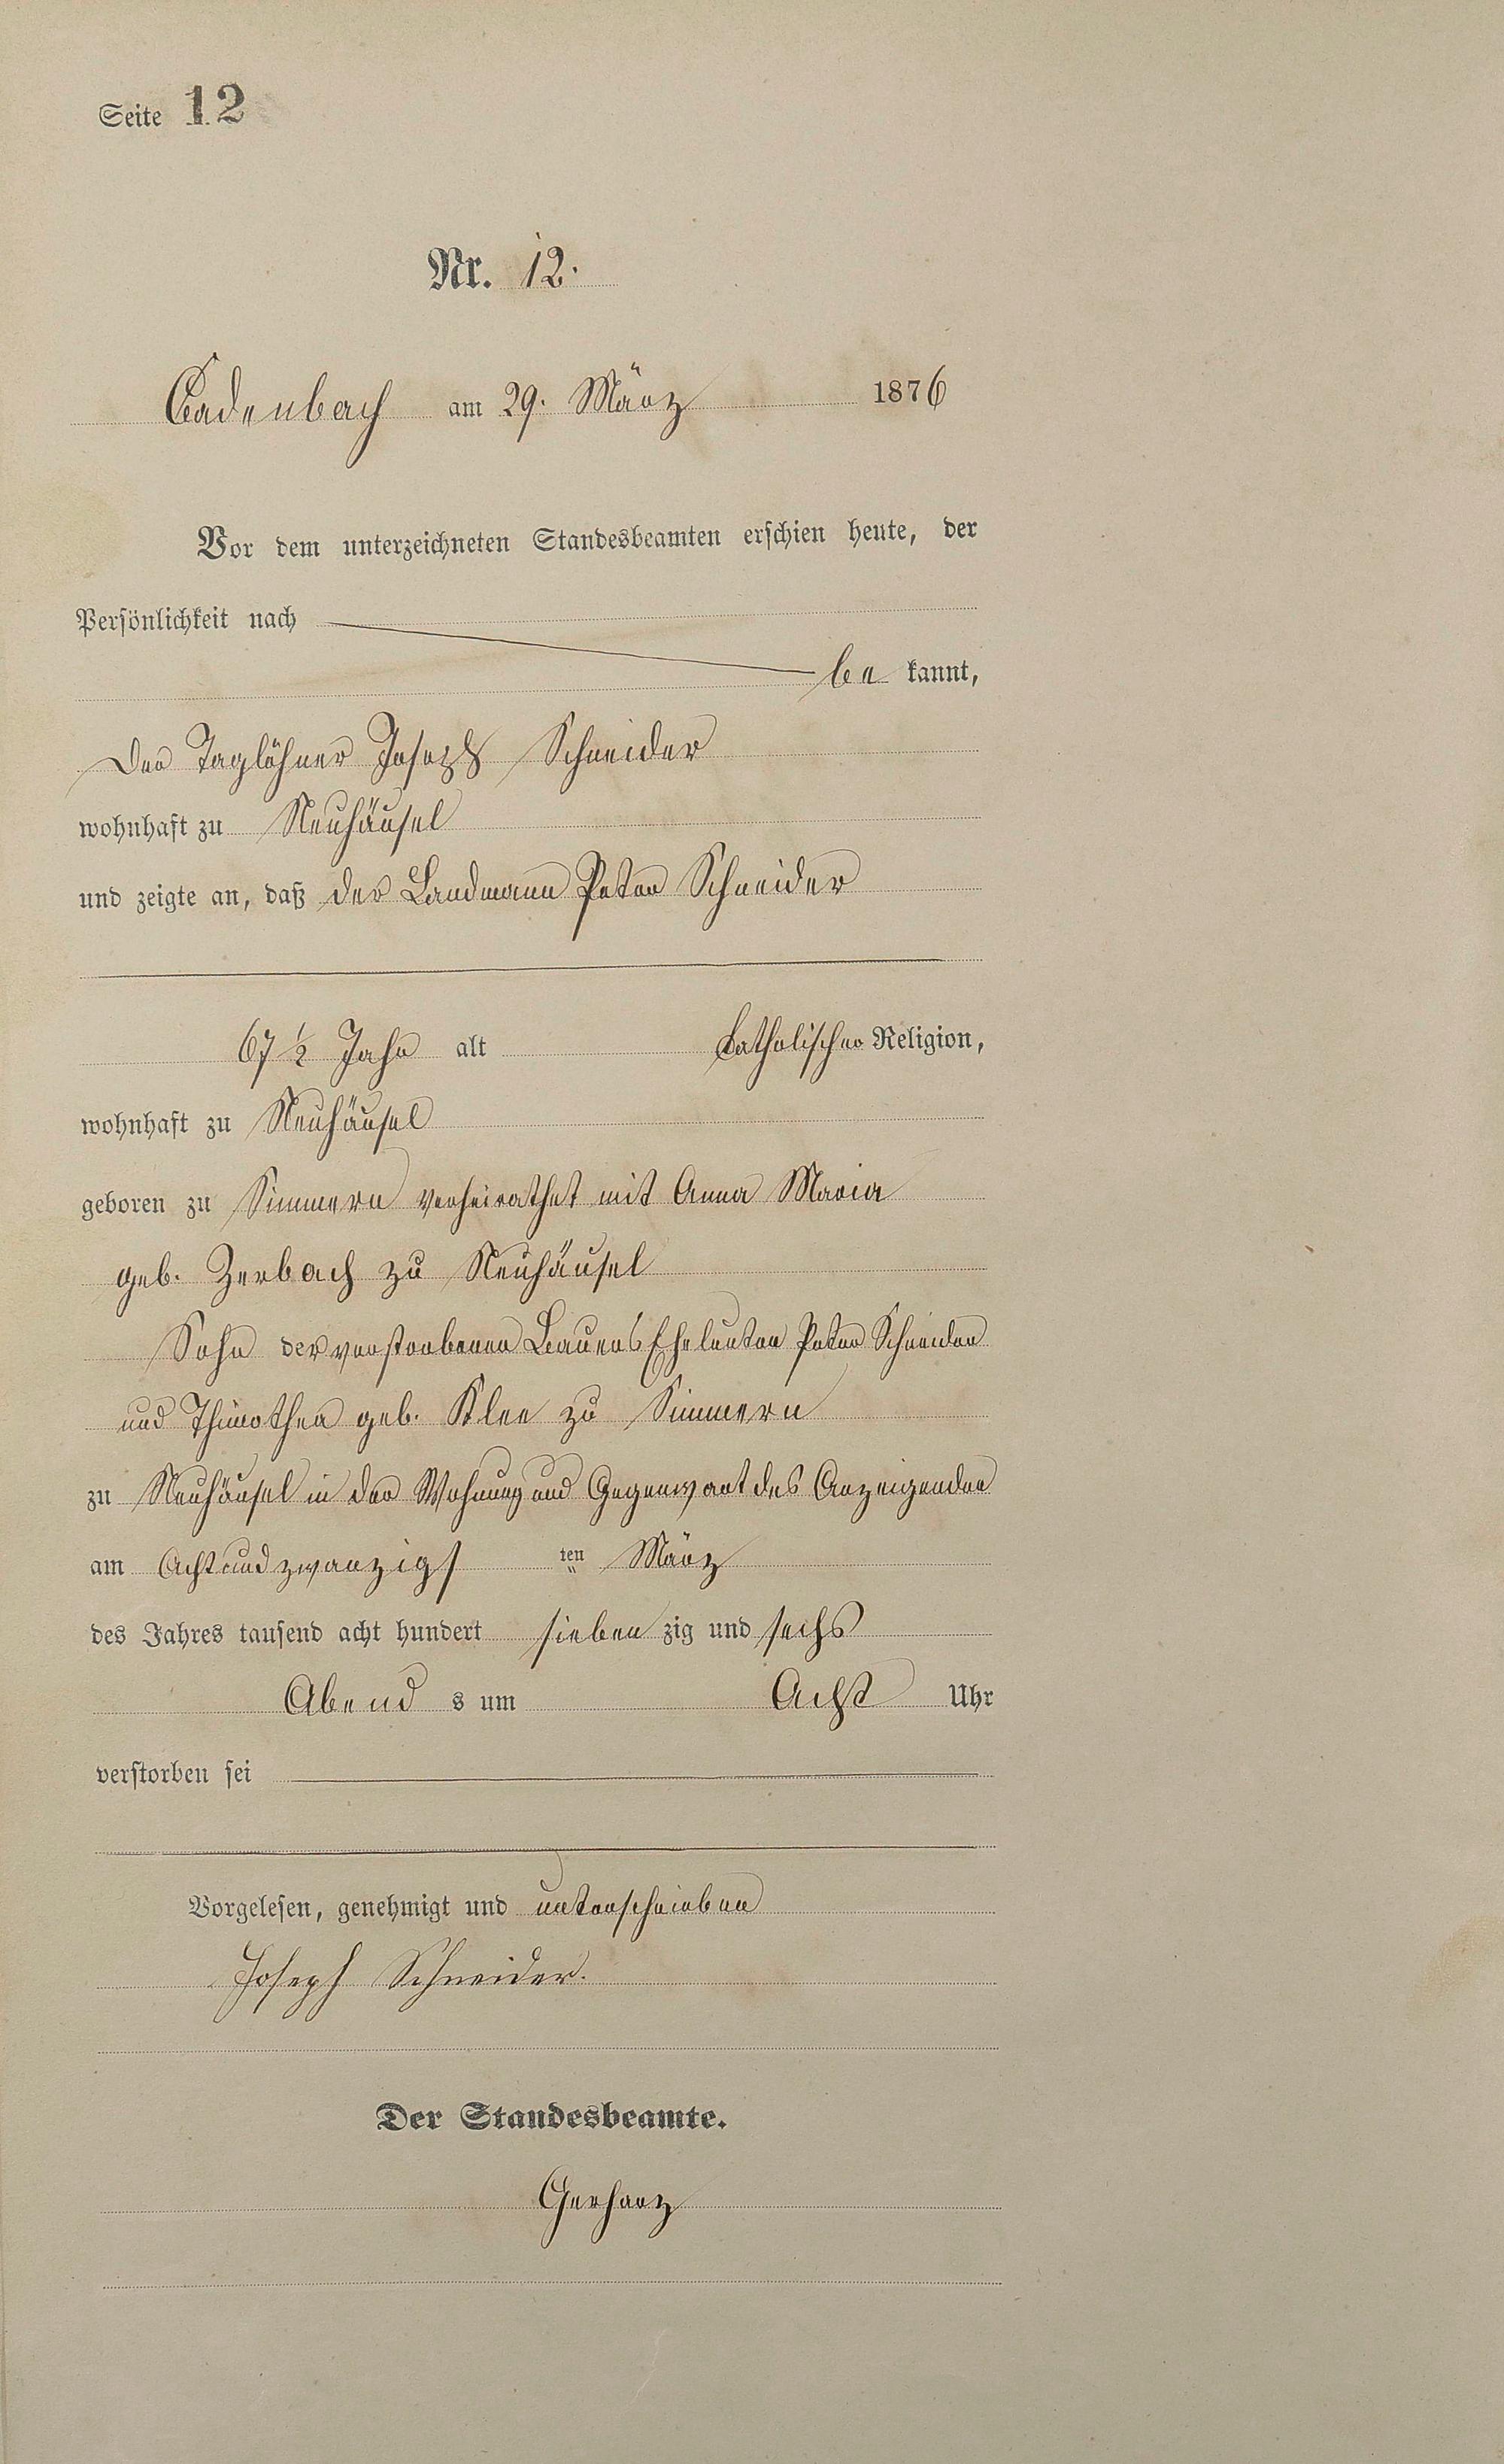 Seite 12
Nr. 12.
Cadenbach am 29. März 1876
Vor dem unterzeichneten Standesbeamten erschien heute, der
Persönlichkeit nach
be kannt,
Der Taglöhner Joseph Schneider
wohnhaft zu Neuhäusel
und zeigte an, daß der Landmann Peter Schneider
67 1/2 Jahr alt katholischer Religion,
wohnhaft zu Neuhäusel
geboren zu Simmern verheirathet mit Anna Maria
geb. Zerbach zu Neuhäusel
Sohn der verstorbenen Bauers Eheleuten Peter Schneider
und Thimothea geb. Klee zu Simmern
zu Neuhäusel in der Wohnung und Gegenwart des Anzeigenden
am Achtundzwanzigs ten März
des Jahres tausend acht hundert sieben zig und sechs
Abend s um Acht Uhr
verstorben sei
Vorgelesen, genehmigt und unterschrieben
Joseph Schneider.
Der Standesbeamte.
Gerharz